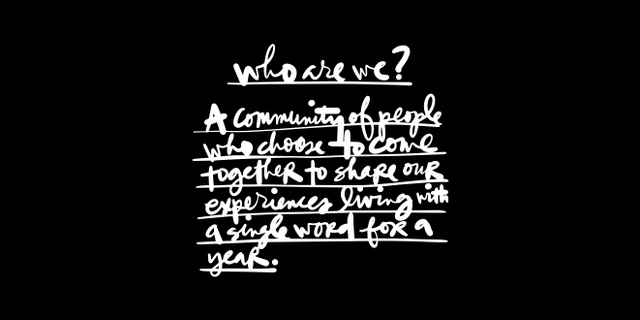 who are we?
A community of people
who choose to come
together to share our
experiences living with
a single word for a
year.